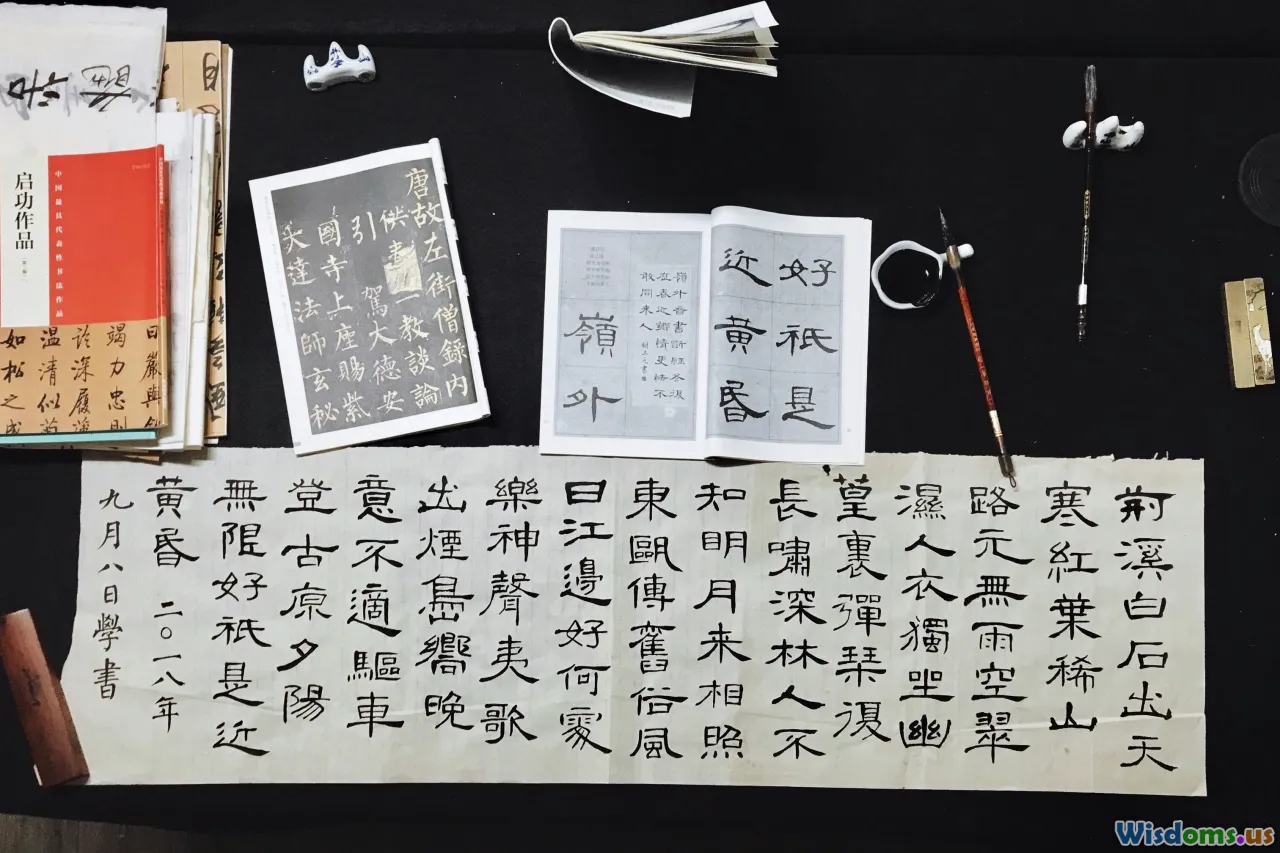 启功作品
中国最具代表性书法作品
竭力忠則
深履薄
温凊似
如松之
唐故左街僧錄内
供奉三教談論
引駕大德安
國寺上座賜紫
大達法師玄秘
好祇是
近黄昏
嶺外音書断經冬復
春近鄉情更怯不
敢問来人
嶺外
荊溪白石出天
寒紅葉稀山
路元無雨空翠
濕人衣獨坐幽
篁裏彈琴復
長嘯深林人不
知明月来相照
東甌傳舊俗風
日江邊好何處
樂神聲夷歌
出煙島嚮晚
意不適驅車
登古原夕陽
無限好祇是近
黄昏 二〇一八年
九月八日學書
Wisdoms.us